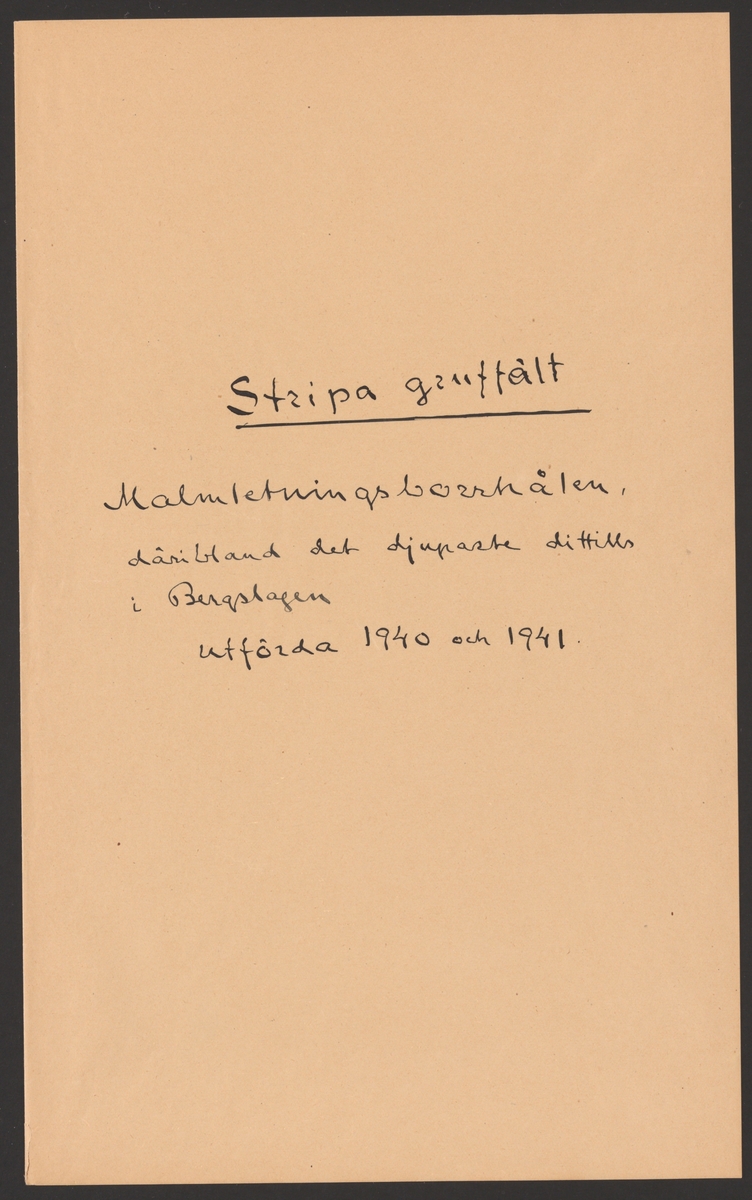 Stripa gruffält
Malmletningsborrhålen,
däribland det djupaste dittills
i Bergslagen
utförda 1940 och 1941.